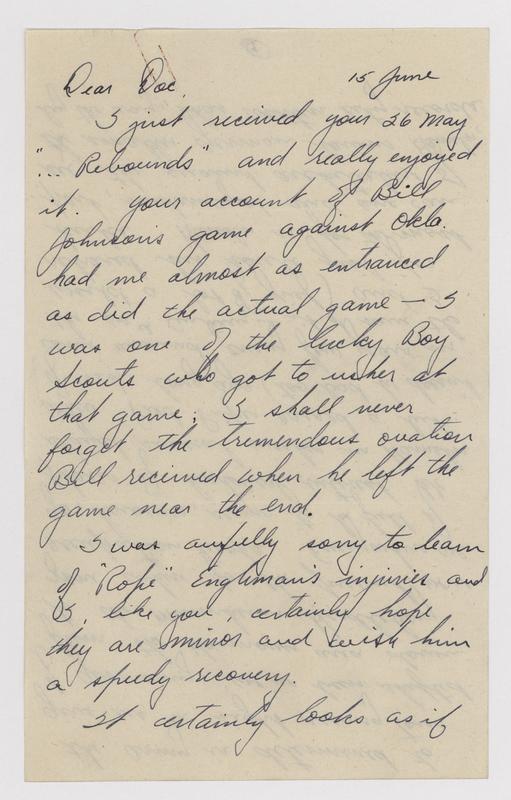 Dear Doc, 15 June
I just received your 26 May
"... Rebounds" and really enjoyed
it. Your account of Bill
Johnson's game against Okla.
had me almost as entranced
as did the actual game — I
was one of the lucky Boy
Scouts who got to usher at
that game; I shall never
forget the tremendous ovation
Bill received when he left the
game near the end.
I was awfully sorry to learn
of "Rope" Engleman's injuries and
I, like you, certainly hope
they are minor and wish him
a speedy recovery.
It certainly looks as if